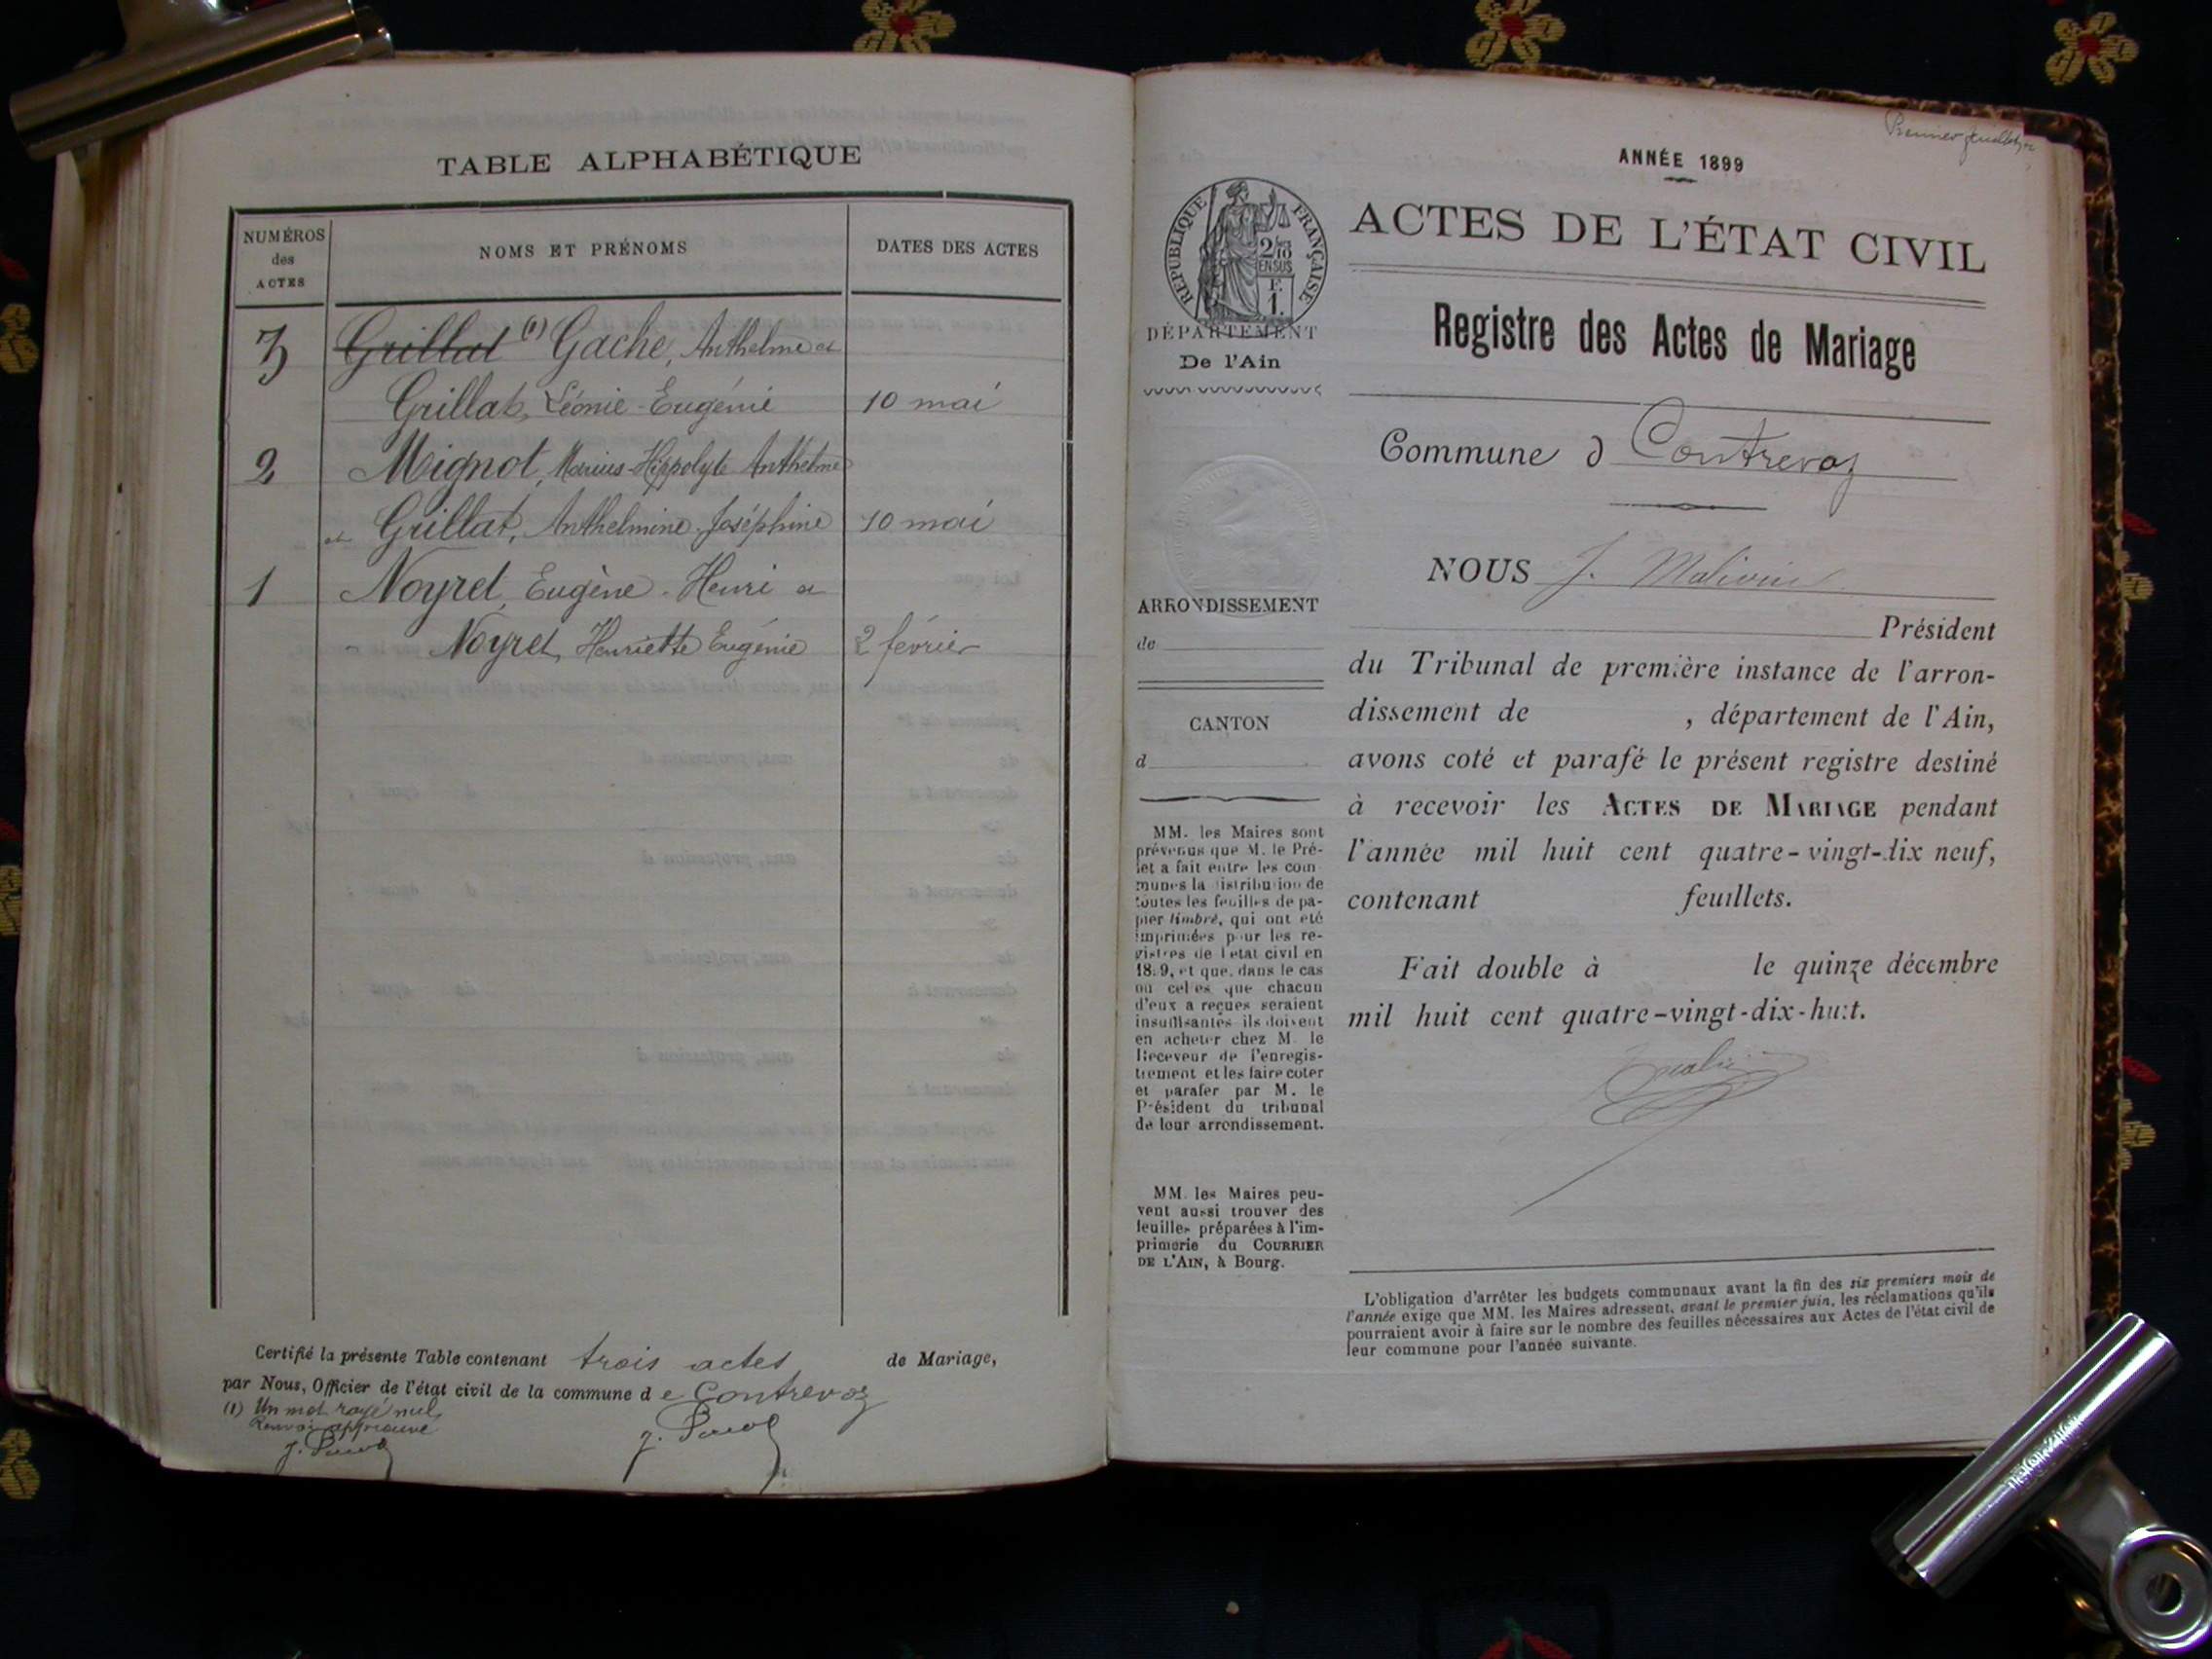 TABLE ALPHABÉTIQUE
NUMÉROS des ACTES
NOMS ET PRÉNOMS
DATES DES ACTES
3 Grillat (1) Gache, Anthelme et
Grillat, Léonie-Eugénie 10 mai
2 Mignot, Marius-Hippolyte Anthelme
et Grillat, Anthelmine-Joséphine 10 mai
1 Noyret, Eugène-Henri et
Noyret, Henriette Eugénie 2 février
Certifié la présente Table contenant trois actes de Mariage,
par Nous, Officier de l'état civil de la commune d e Contrevoz
(1) Un mot rayé nul
Renvoi approuvé
Premier feuillet
ANNÉE 1899
ACTES DE L'ÉTAT CIVIL
RÉPUBLIQUE FRANÇAISE
2/10 EN SUS
F. 1.
DÉPARTEMENT
De l'Ain
Registre des Actes de Mariage
Commune d Contrevoz
NOUS J.
Président
ARRONDISSEMENT
de
CANTON
d
du Tribunal de première instance de l'arron-
dissement de , département de l'Ain,
avons coté et parafé le présent registre destiné
à recevoir les ACTES DE MARIAGE pendant
l'année mil huit cent quatre-vingt-dix neuf,
contenant feuillets.
Fait double à le quinze décembre
mil huit cent quatre-vingt-dix-huit.
MM. les Maires sont
prévenus que M. le Pré-
fet a fait entre les com
munes la distribution de
toutes les feuilles de pa-
pier timbré, qui ont été
imprimées pour les re-
gistres de l'état civil en
1899, et que, dans le cas
où celles que chacun
d'eux a reçues seraient
insuffisantes ils doivent
en acheter chez M. le
Receveur de l'enregis-
trement et les faire coter
et parafer par M. le
Président du tribunal
de leur arrondissement.
MM. les Maires peu-
vent aussi trouver des
feuilles préparées à l'im-
primerie du COURRIER
DE L'AIN, à Bourg.
L'obligation d'arrêter les budgets communaux avant la fin des six premiers mois de
l'année exige que MM. les Maires adressent, avant le premier juin, les réclamations qu'ils
pourraient avoir à faire sur le nombre des feuilles nécessaires aux Actes de l'état civil de
leur commune pour l'année suivante.